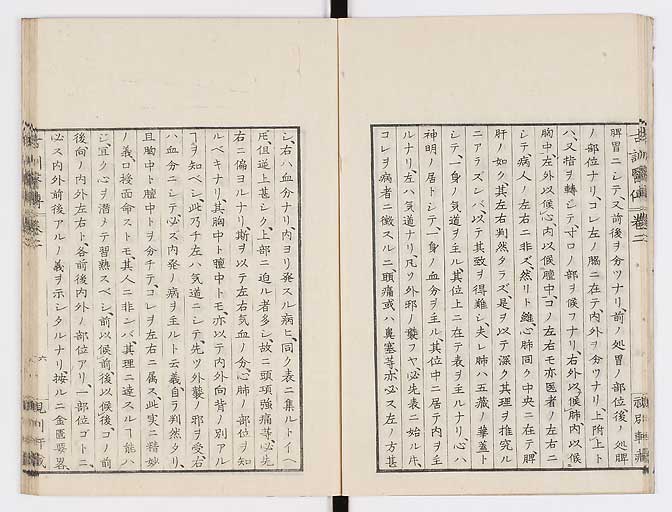 脾胃ニシテス前後ヲ分ツナリ前ノ処胃ノ部位後ノ処脾
ノ部位ナリコレ左ノ膈ニ在テ内外ヲ分ツナリ上附上ト
ハ又指ヲ轉シテ寸口ノ部ヲ候フナリ右外以候肺内以候
胸中左外以候心内以候膻中コノ左右モ亦医者ノ左右ニ
シテ病人ノ左右ニ非ズ然リト雖心肺同ク中央ニ在テ脾
肝ノ如ク其左右判然タラズ是ヲ以テ深ク其理ヲ推究ル
ニアラズンバ以テ其致ヲ得難シ夫レ肺ハ五蔵ノ華蓋ト
シテ一身ノ気道ヲ主ル其位上ニ在テ表ヲ主ルナリ心ハ
神明ノ居トシテ一身ノ血分ヲ主ル其位中ニ居テ内ヲ主
ルナリ左ハ気道ナリ凡ソ外邪ノ襲フヤ必先表ニ始ル
コレヲ病者ニ徴スルニ頭痛或ハ鼻塞等亦必ス左ノ方甚
シ右ハ血分ナリ内ヨリ発スル病ヒ同ク表ニ集ルトイヘ
𪜈但逆上甚シク上部ニ迫ル者多シ故ニ頭項強痛等必先
右ニ偏ヨルナリ斯ヲ以テ左右気血ノ分心肺ノ部位ヲ知
ルベキナリ其胸中ト膻中トモ亦以テ内外向背ノ別アル
ヿヲ知ベシ此乃チ左ハ気道ニシテ先ツ外襲ノ邪ヲ受右
ハ血分ニシテ必ス内発ノ病ヲ主ルト云義自ラ判然タリ
且胸中ト膻中トヲ分チテコレヲ左右ニ属ス此実ニ精妙
ノ義口授面命ストモ其人ニ非ンバ其理ニ達スルヿ能ハ
シ宜ク心ヲ潜メテ習熟スベシ前以候前後以候後コノ前
後向ノ内外左右ト各前後内外ノ部位アリ一部位ゴトニ
必ス内外前後アルノ義ヲ示シタルナリ按ルニ金匱要畧
六